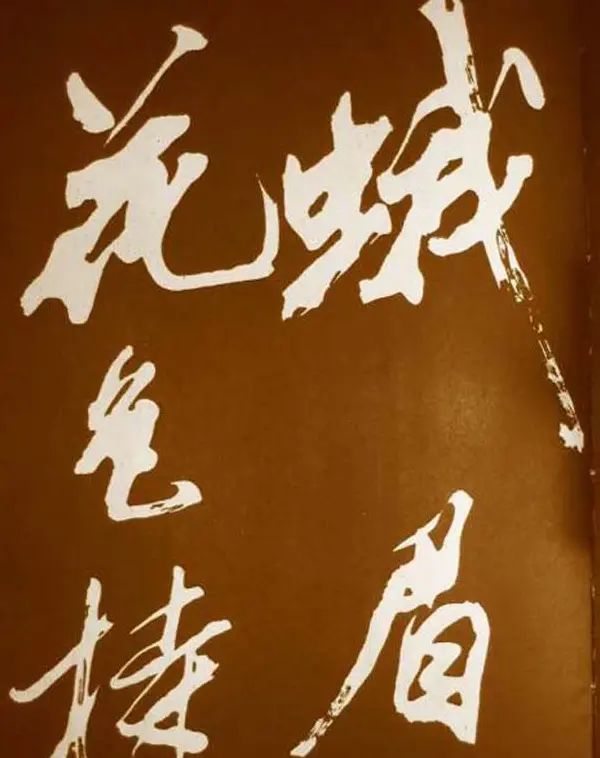 蛾眉
花色捧